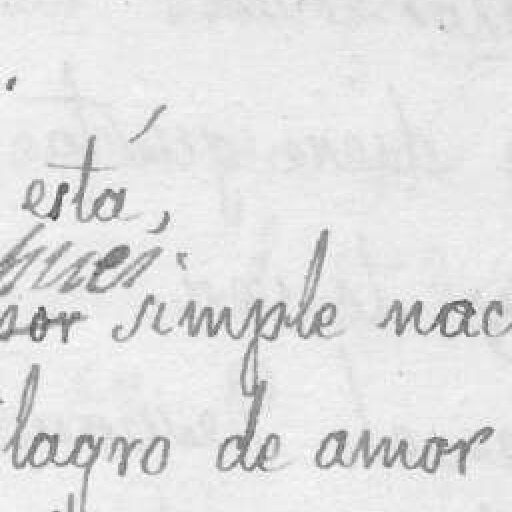 está,
pues.
por simple nac
ilagro de amor